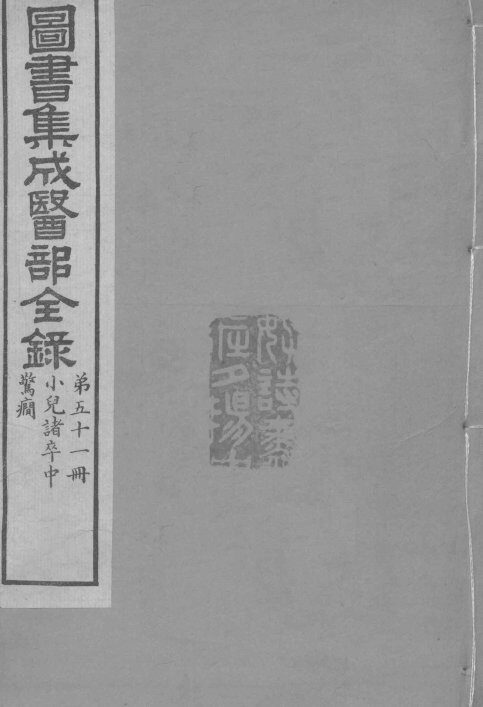 圖書集成醫部全錄
弟五十一冊
小兒諸卒中
驚癇